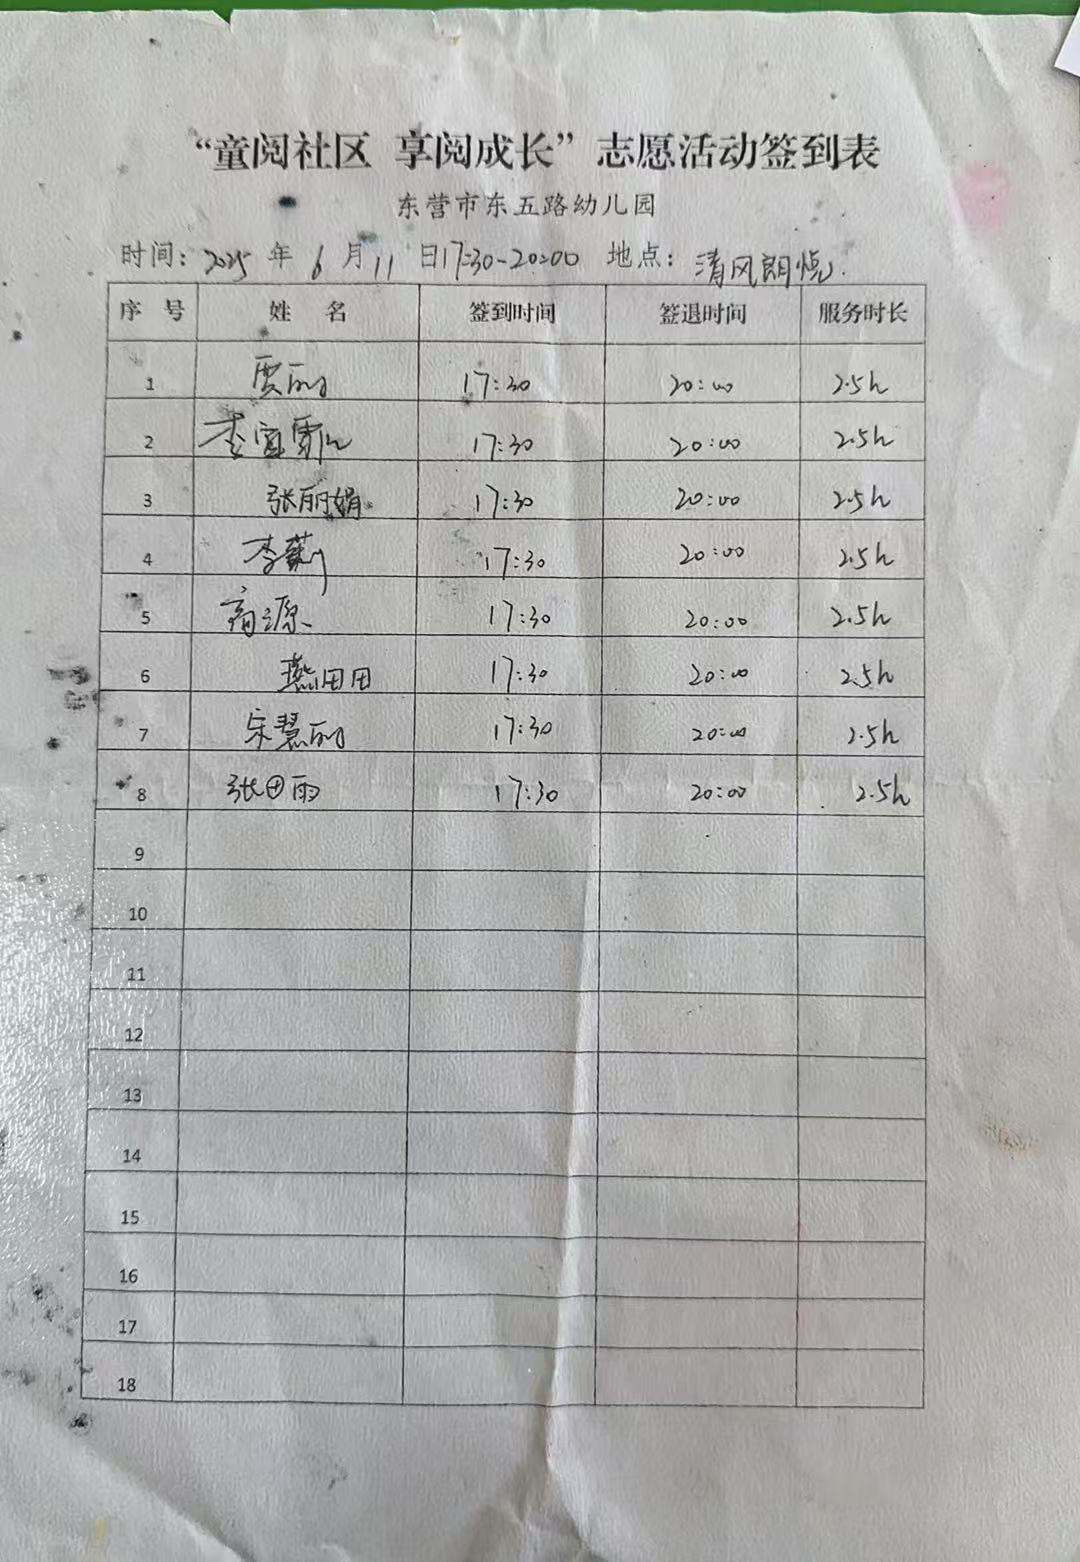 “童阅社区 享阅成长”志愿活动签到表
东营市东五路幼儿园
时间：2025年6月11日17:30-20:00 地点：清风朗悦.
序号 姓名 签到时间 签退时间 服务时长
1 贾丽 17:30 20:00 2.5h
2 李宜 17:30 20:00 2.5h
3 张丽娟 17:30 20:00 2.5h
4 李 17:30 20:00 2.5h
5 商源 17:30 20:00 2.5h
6 燕田田 17:30 20:00 2.5h
7 宋慧丽 17:30 20:00 2.5h
8 张田雨 17:30 20:00 2.5h
9
10
11
12
13
14
15
16
17
18